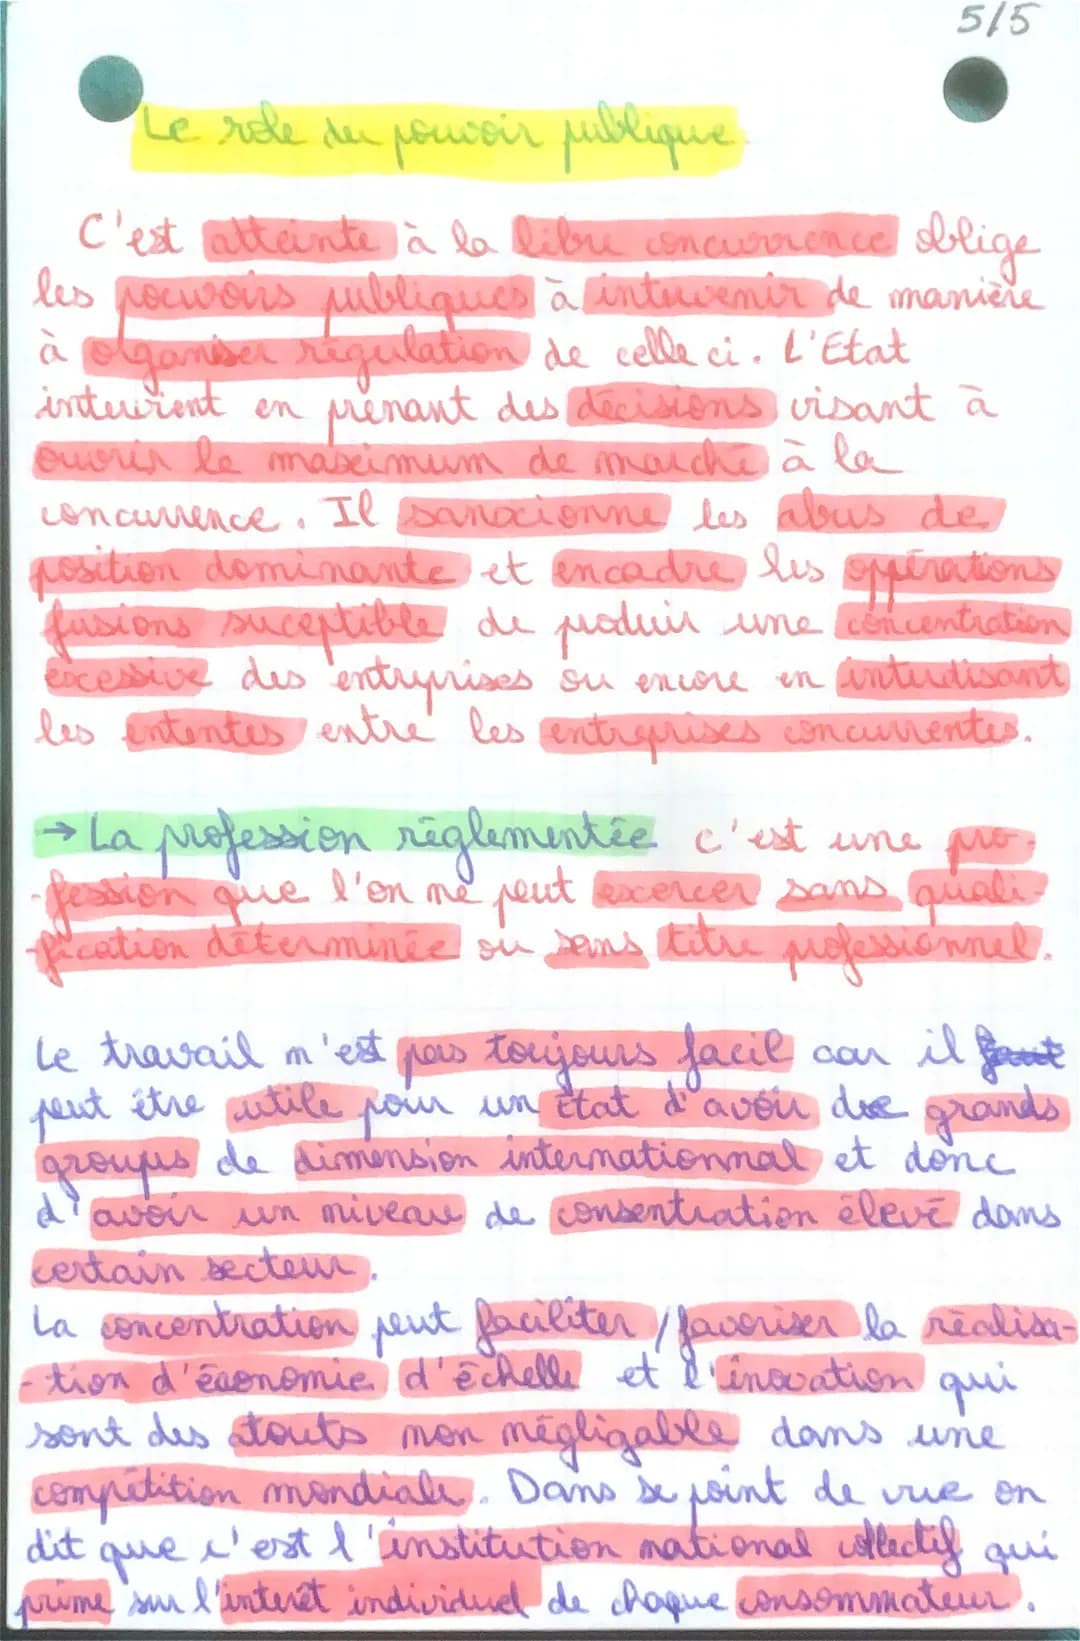 5/5
Le role du pouvoir publique.
C'est atteinte à la libre concurrence oblige
les pouvoirs publiques à intervenir de manière
à organiser régulation de celle ci. L'Etat
intervient en prenant des décisions visant à
ouvrir le maximum de marché à la
concurrence. Il sanocionne les abus de
position dominante et encadre les oppérations
fusions suceptible de produir une concentration
excessive des entreprises ou encore en interdisant
les ententes entre les entreprises concurrentes.
→ La profession réglementée c'est une pro-
-fession que l'on ne peut escercer sans quali-
-fication déterminée ou sans titre professionnel.
Le travail n'est pas toujours facil car il faut
peut être utile pour un état d'avoir de grands
groupes de dimension internationnal et donc
d'avoir un niveau de consentration élevé dans
certain secteur.
La concentration peut faciliter / favoriser la réalisa-
-tion d'économie d'échelle et l'inovation qui
sont des atouts non négligable dans une
compétition mondiale. Dans se point de vue on
dit que c'est l'institution national collectif qui
prime sur l'interêt individuel de chaque consommateur.